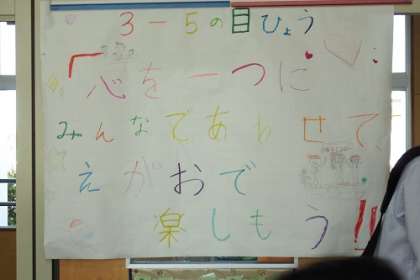 3-5の目ひょう
「心を一つに
みんなであわせて
えがおで
楽しもう!!